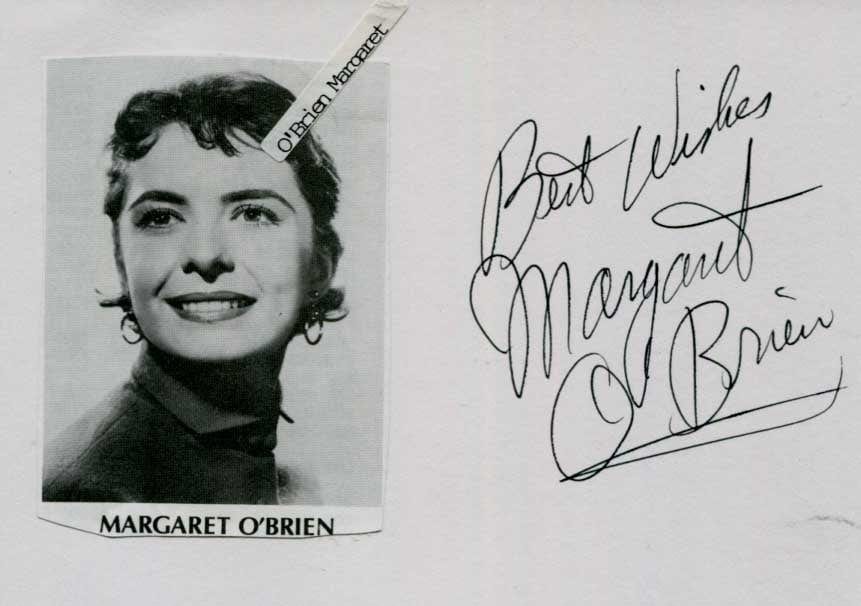 O'Brien Margaret
MARGARET O'BRIEN
Best Wishes
Margaret
O'Brien